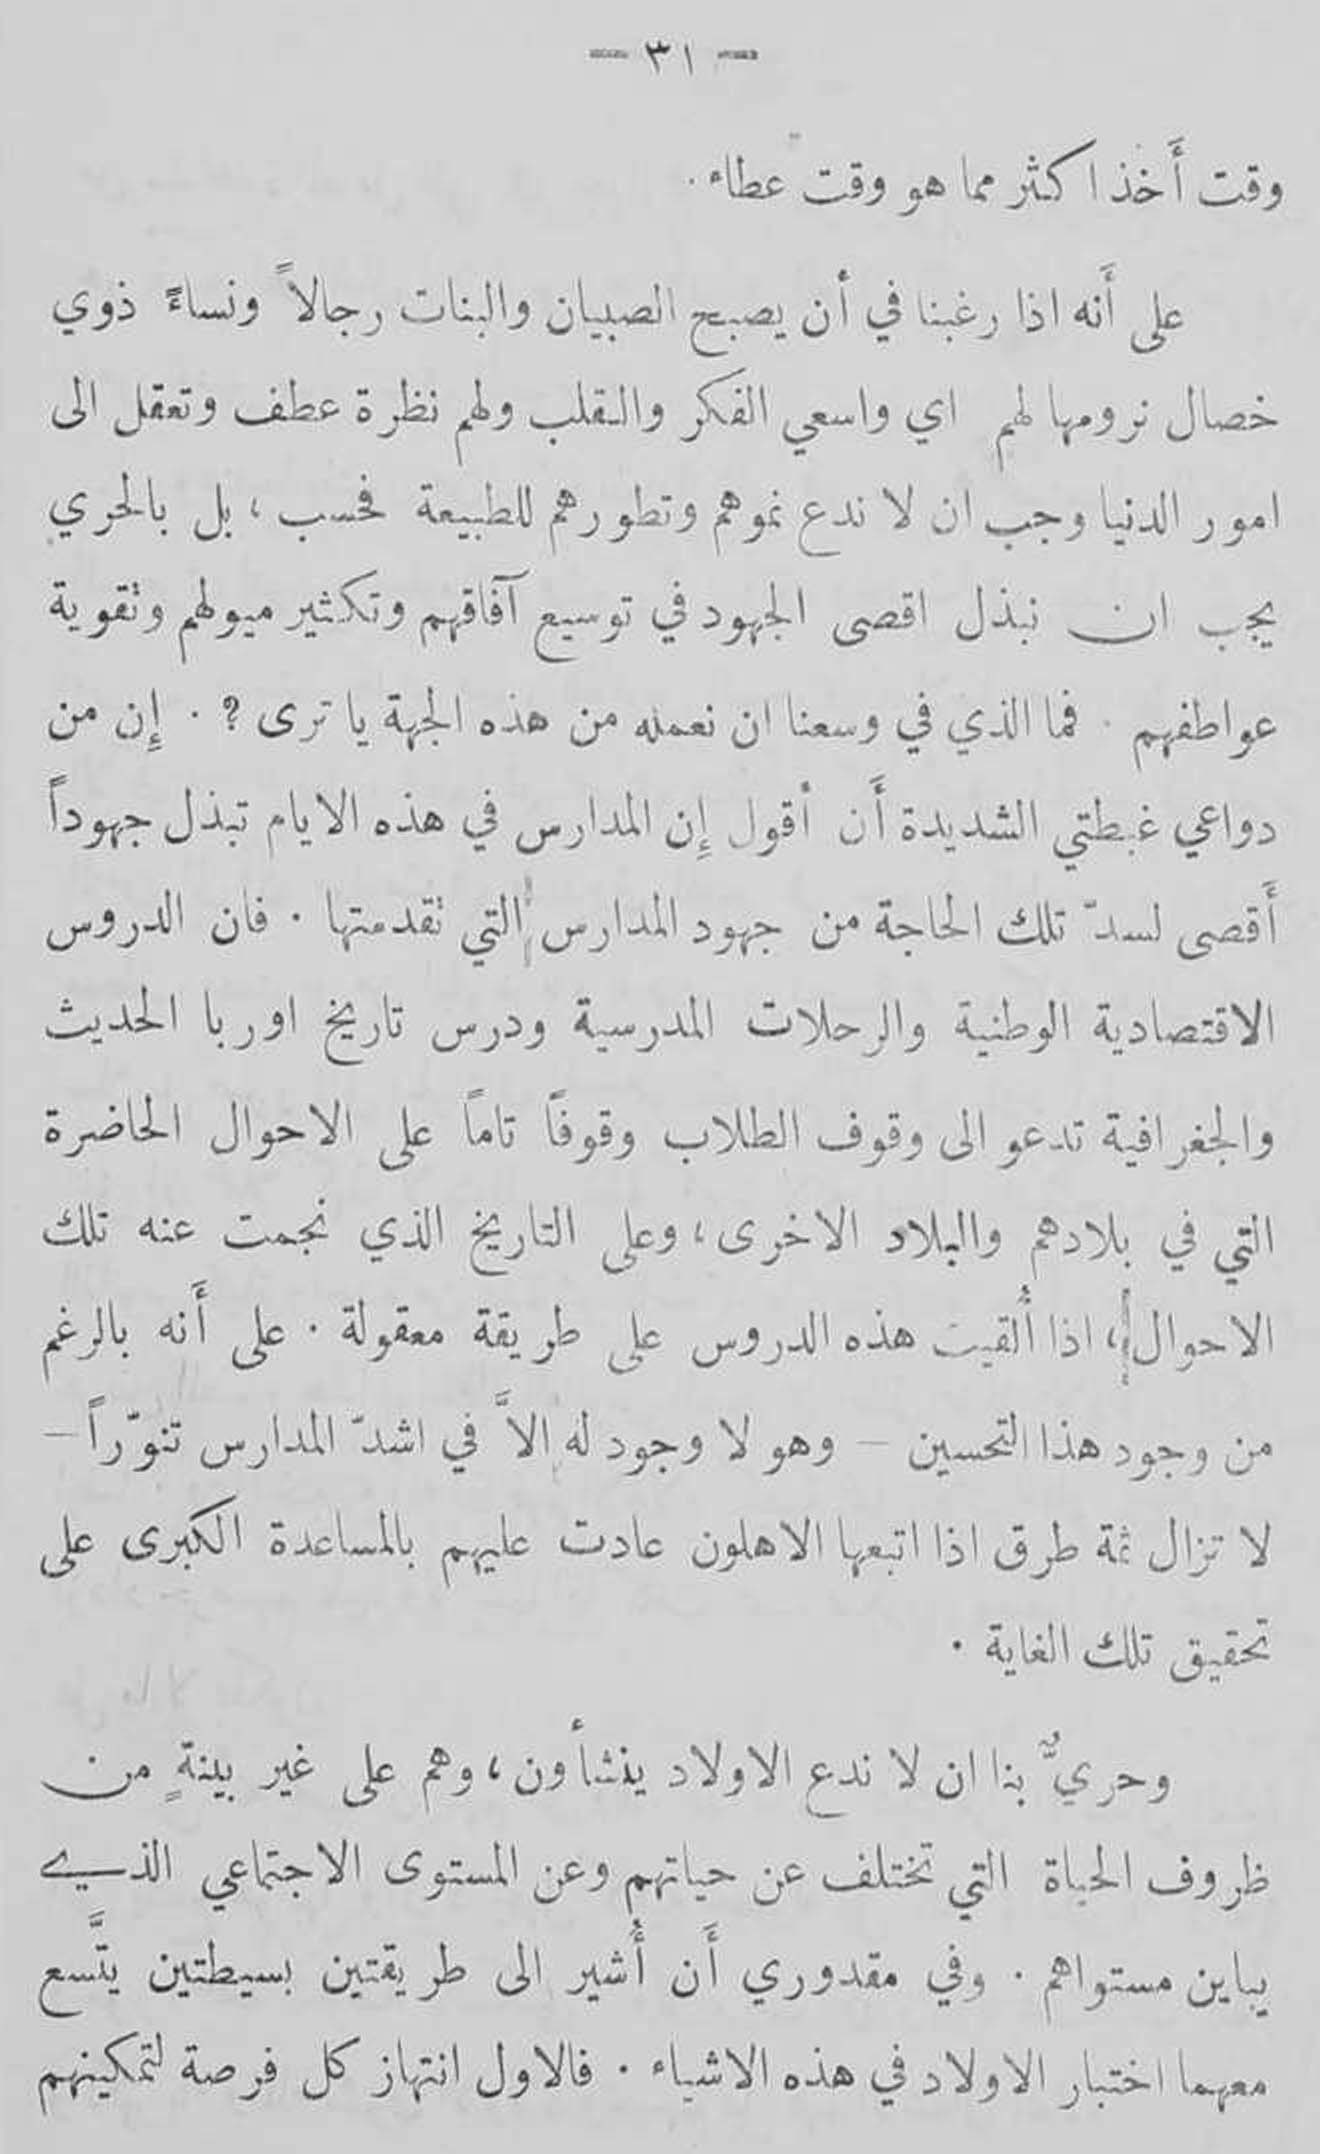 — ٣١ —
وقت أَخذ اكثر مما هو وقت عطاء .
على أَنه اذا رغبنا في أن يصبح الصبيان والبنات رجالاً ونساءً ذوي
خصال نرومها لهم اي واسعي الفكر والقلب ولهم نظرة عطف وتعقل الى
امور الدنيا وجب ان لا ندع نموهم وتطورهم للطبيعة فحسب ، بل بالحري
يجب ان نبذل اقصى الجهود في توسيع آفاقهم وتكثير ميولهم وتقوية
عواطفهم . فما الذي في وسعنا ان نعمله من هذه الجهة يا ترى ? . إِن من
دواعي غبطتي الشديدة أَن أقول إِن المدارس في هذه الايام تبذل جهوداً
أَقصى لسدّ تلك الحاجة من جهود المدارس التي تقدمتها . فان الدروس
الاقتصادية الوطنية والرحلات المدرسية ودرس تاريخ اوربا الحديث
والجغرافية تدعو الى وقوف الطلاب وقوفاً تاماً على الاحوال الحاضرة
التي في بلادهم والبلاد الاخرى ، وعلى التاريخ الذي نجمت عنه تلك
الاحوال ، اذا أُلقيت هذه الدروس على طريقة معقولة . على أَنه بالرغم
من وجود هذا التحسين – وهو لا وجود له الاَّ في اشدّ المدارس تنوّراً –
لا تزال ثمة طرق اذا اتبعها الاهلون عادت عليهم بالمساعدة الكبرى على
تحقيق تلك الغاية .
وحريٌّ بنا ان لا ندع الاولاد ينشأون ، وهم على غير بينةٍ من
ظروف الحياة التي تختلف عن حياتهم وعن المستوى الاجتماعي الذي
يباين مستواهم . وفي مقدوري أَن أُشير الى طريقتين بسيطتين يتَّسع
معهما اختبار الاولاد في هذه الاشياء . فالاول انتهاز كل فرصة لتمكينهم